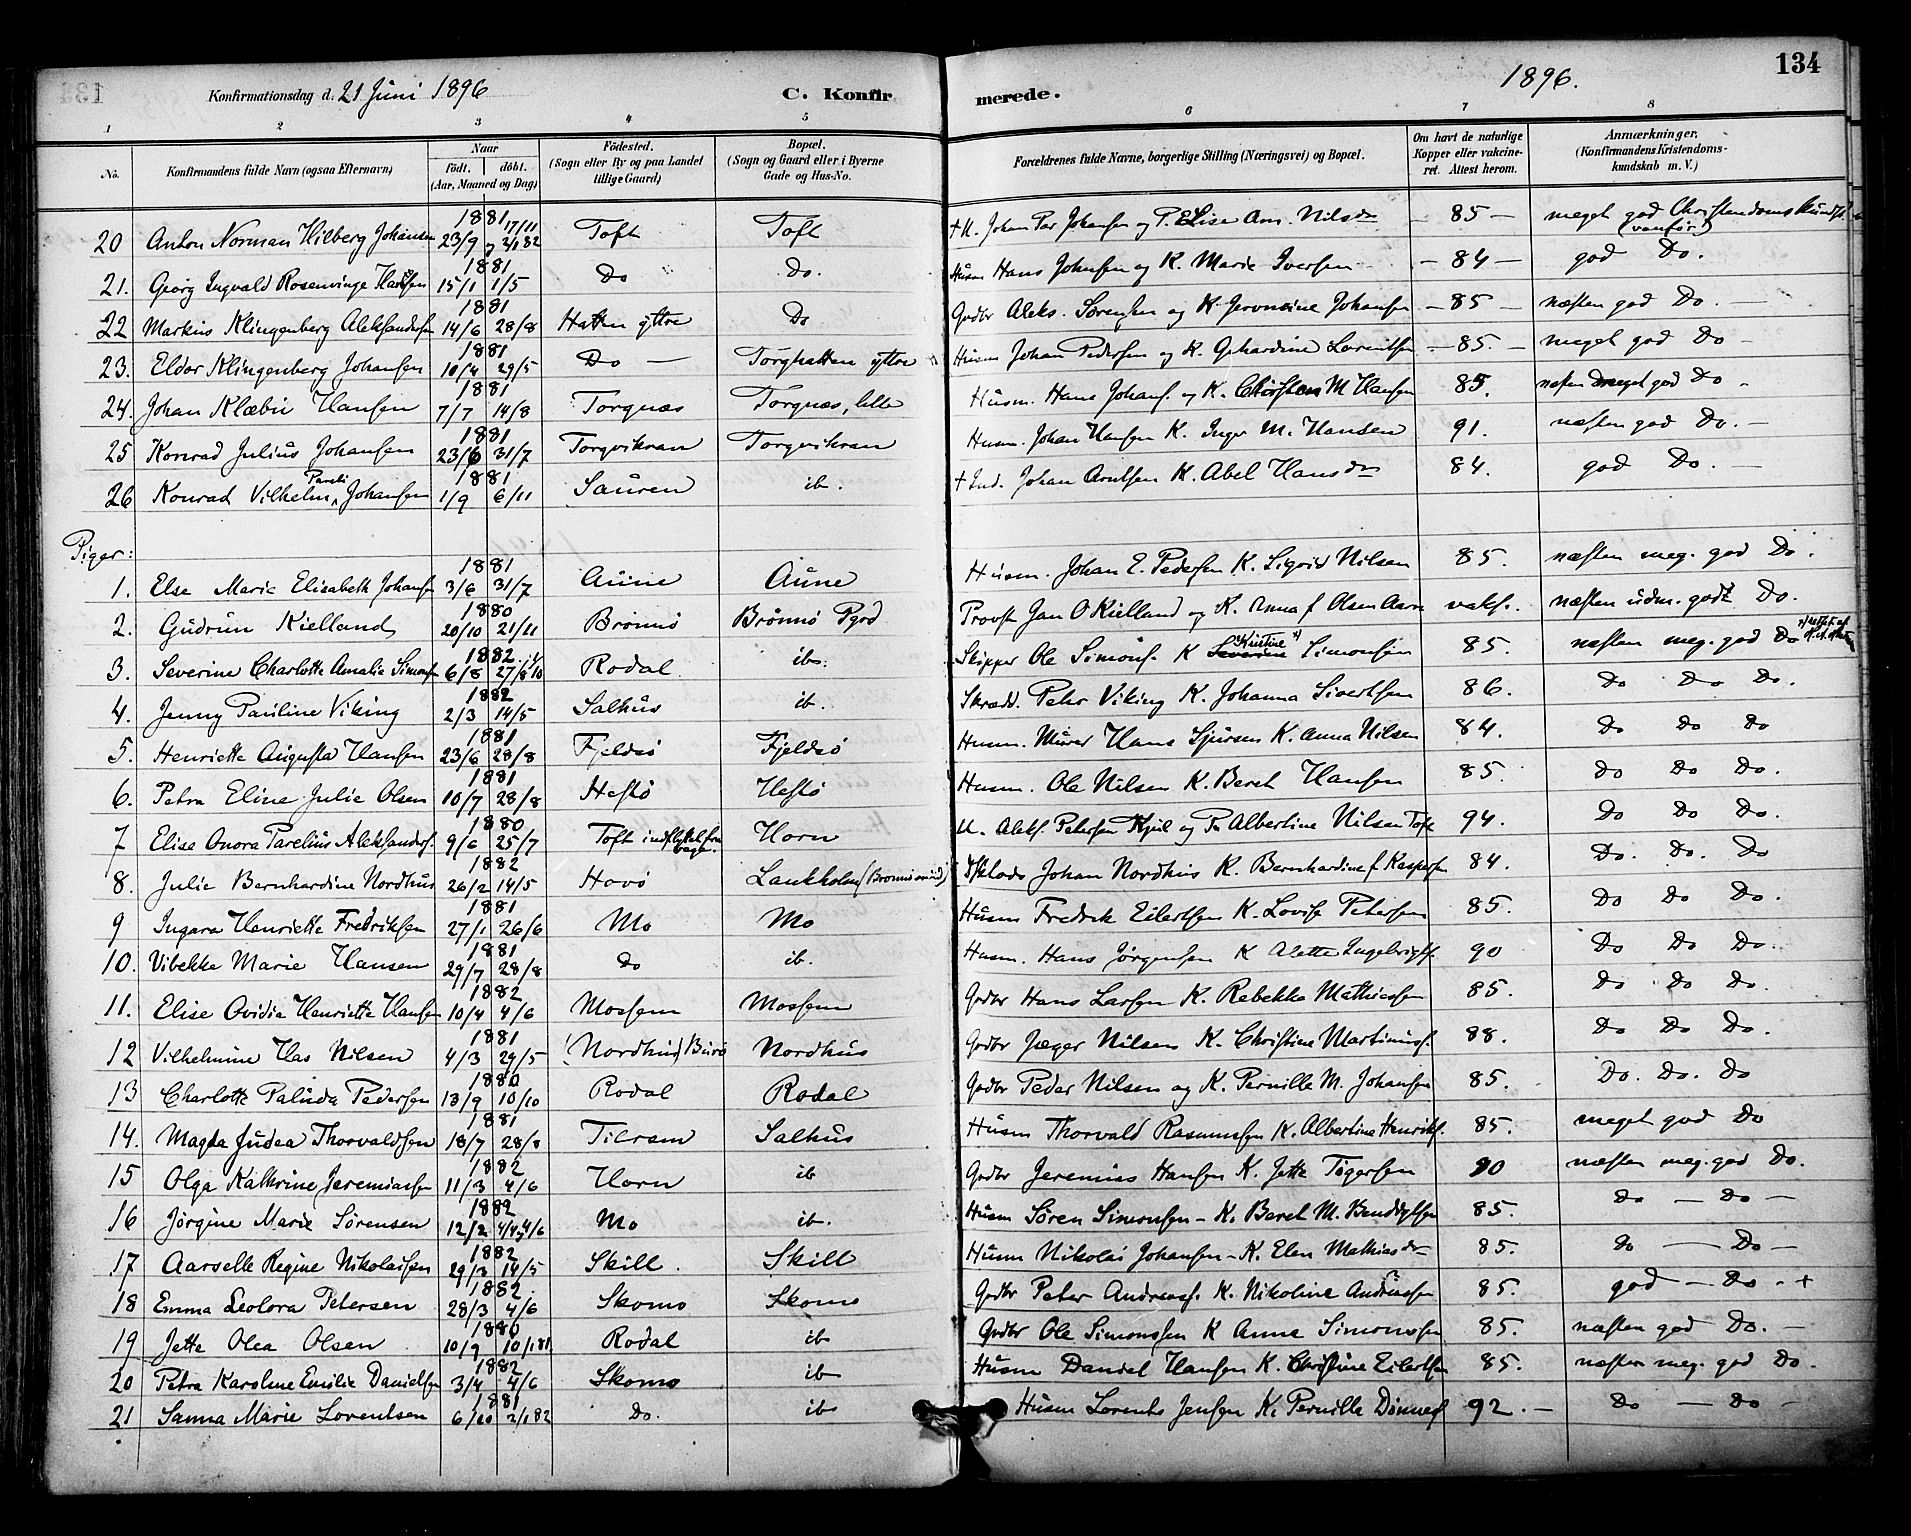 134
Konfirmationsdag d. 21 Juni 1896 C. Konfirmerede. 1896.
1 2 3 4 5 6 7 8
No. Konfirmandens fulde Navn (ogsaa Efternavn) Naar født. døbt. (Aar, Maaned og Dag) Fødested. (Sogn eller By og paa Landet tillige Gaard) Bopæl. (Sogn og Gaard eller i Byerne Gade og Hus-No. Forældrenes fulde Navne, borgerlige Stilling (Næringsvei) og Bopæl. Om havt de naturlige Kopper eller vakcineret. Attest herom. Anmærkninger. (Konfirmandens Kristendomskundskab m. V.)
20 Anton Norman Hilberg Johansen 1881 23/9 17/11 2/1 82 Toft Toft Johan Johansen og Elise Nilsdr — 85 — meget god Christendomskundsk. (vanfør)
21. Georg Ingvald Rosenvinge Hansen 1881 15/1 1/5 Do Do. Husm Hans Johnsen og K. Marie Iversen — 84 — god Do.
22 Markus Klingenberg Aleksandersen 1881 14/6 28/8 Hatten yttre Do Grdbr Aleks. Sørensen og K Jeronsine Johansen — 85 — næsten god Do. —
23. Eldor Klingenberg Johansen 1881 10/4 29/5 Do — Torghatten yttre Husm Johan Pedersen og K. Gehardine Lorentsen — 85 — meget god Do -
24. Johan Klæbu Hansen 1881 7/7 14/8 Torgnæs Torgnæs, lille Husm. Hans Johans. og K. M Hansen 85. næsten meget god Do -
25 Konrad Julius Johansen 1881 23/6 31/7 Torgvikran Torgvikran Husm. Johan Hansen K. Inger M. Hansen 91. næsten god Do. —
26 Konrad Vilhelm Pareli Johansen 1881 1/9 6/11 Sauren ib. + Ind. Johan Arntsen K. Abel Hansdr 84. god Do. —
Piger:
1. Else Marie Elisabeth Johansen 1881 3/6 31/7 Aune Aune Husm. Johan E. Pedersen K. Sigrid Nilsen 85. næsten meg. god Do.
2. Gudrun Kielland 1880 20/10 21/11 Brønnø Brønnø Pgrd Provst Jan O Kielland og K. Anna f Olsen vaks. næsten udm. godt Do.
3. Severine Charlotte Amalie Simonsen 1882 6/8 27/8 Rodal ib. Skipper Ole Simons. K Severine "Kristine" Simonsen 85. næsten meg. god Do
4. Jenny Pauline Viking 1882 2/3 14/5 Salhus ib. Skrædd. Peter Viking K. Johanna Sivertsen 86. Do Do Do.
5. Henriette Augusta Hansen 1881 23/6 28/8 Fjeldsø Fjeldsø Husm. Murer Hans Sjursen K. Anna Nilsen 84. Do Do Do
6. Petra Eline Julie Olsen 1881 10/7 28/8 Hestø Hestø Husm. Ole Nilsen K. Beret Hansen 85. Do Do Do.
7 Elisa Onora Parelius Aleksanders. 1880 9/6 25/7 Toft Horn U. Aleks. Petersen Kjul og P. Albertine Nilsen Toft 94. Do Do Do.
8. Julie Bernhardine Nordhus 1882 26/2 14/5 Hovø Laukholm (Brønnøsund) Johan Nordhus K. Bernhardine f Kaspersen 84. Do. Do. Do
9 Ingara Henriette Fredriksen 1881 27/1 26/6 Mo Mo Husm Fredrik Eilertsen K. Lovise Petersen 85. Do Do Do.
10. Vibekke Marie Hansen 1881 29/7 28/8 do ib. Husm. Hans Jørgensen K Alette Ingebrigts. 90 Do Do Do.
11. Elise Ovidia Henriette Hansen 1882 10/4 4/6 Mossem Mossem Grdbr Hans Larsen K. Rebekka Mathiassen 85. Do Do Do
12 Vilhelmine Has Nilsen 1881 4/3 29/5 (Nordhus) Burø Nordhus Grdbr Jæger Nilsen K. Christine Martinus. 88. Do Do Do.
13 Charlotte Paluda Pedersen 1880 13/9 10/10 Rodal Rodal Grdbr Peder Nilsen og K. Pernille M. Johansen 85. Do. Do. Do
14. Magda Judea Thorvaldsen 1881 18/7 28/8 Tilrem Salhus Husm Thorvald Rasmussen K. Albertine Henriks. 85. meget god Do
15 Olga Kathrine Jeremiassen 1882 11/3 4/6 Horn ib Grdbr Jeremias Hansen K. Jette Tøgersen 90 næsten meg. god Do.
16 Jørgine Marie Sørensen 1882 12/2 4/4 4/6 Mo ib. Husm Søren Simonsen – K. Beret M. Benddiksen 85. Do — Do —
17 Aarselle Regine Nikolaisen 1882 29/3 14/5 Skill. Skill Husm Nikolai Johansen – K. Elen Mathiasdr 85. Do — Do —
18 Emma Leolora Petersen 1882. 28/3 4/6 Skomo Skomo Grdbr Peter Andreass. K. Nikoline Andreassen 85. god — Do . +
19 Jette Olea Olsen 1880 10/9 10/1 81 Rodal ib Grdbr Ole Simonssen K Anna Simonssen 85. næsten god Do. —
20 Petra Karoline Emilie Danielsen 1882 3/4 4/6 Skomo ib Husm Daniel Hansen K. Christine Eilertsen 85. næsten meg. god Do.
21 Sanna Marie Lorentsen 1881 6/10 2/1 82 Do. ib Husm Lorents Jensen K. Pernille Dønnes 92. — Do — Do —